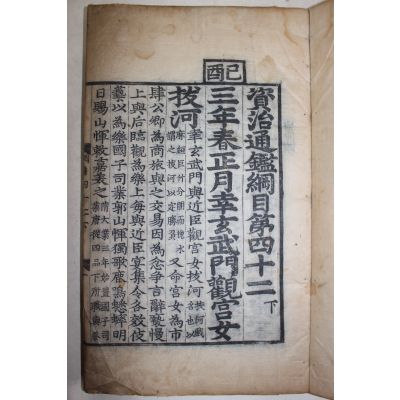 資治通鑑綱目第四十二 下
己酉
三年春正月幸玄武門觀宮女
拔河 幸玄武門與近臣觀宮女拔河 又命宮女為市
肆公卿為商旅與之交易因為忿爭言辭褻慢
上與后臨觀為樂上每與近臣宴集令各效伎
藝以為樂國子司業郭山惲獨歌鹿鳴蟋蟀明
日賜山惲敕嘉美之 隋大業三年始置國子司業唐從四品下所職與祭